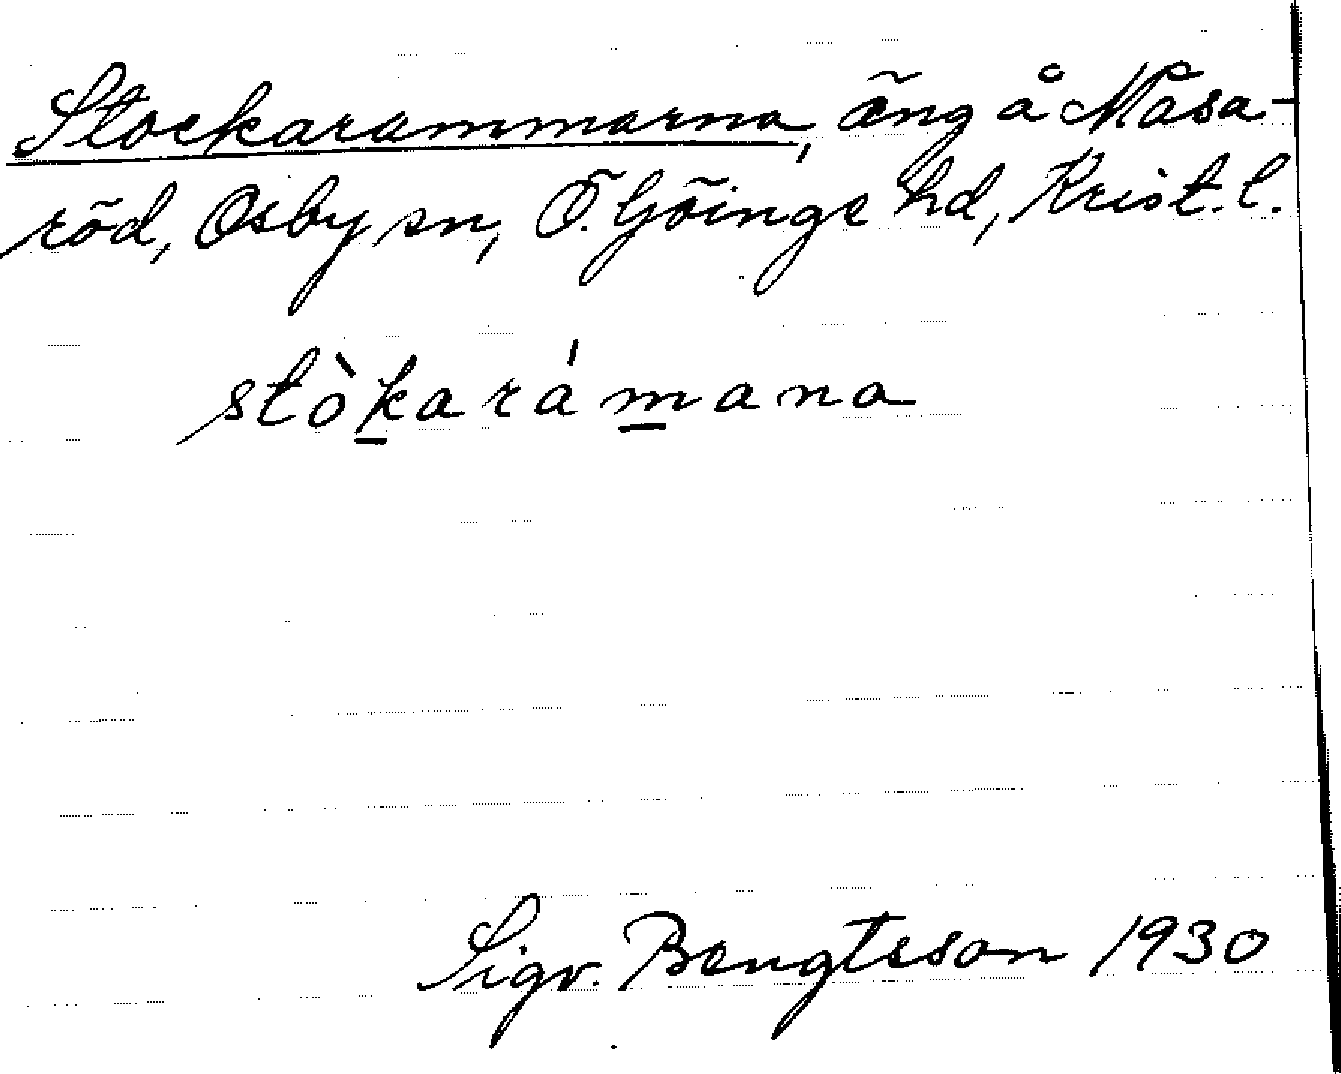 Stockarammarna, äng å Måsa-
röd, Osby sn, Ö. Göinge hd, Krist. l.
stòkarámana
Sigv. Bengtsson 1930